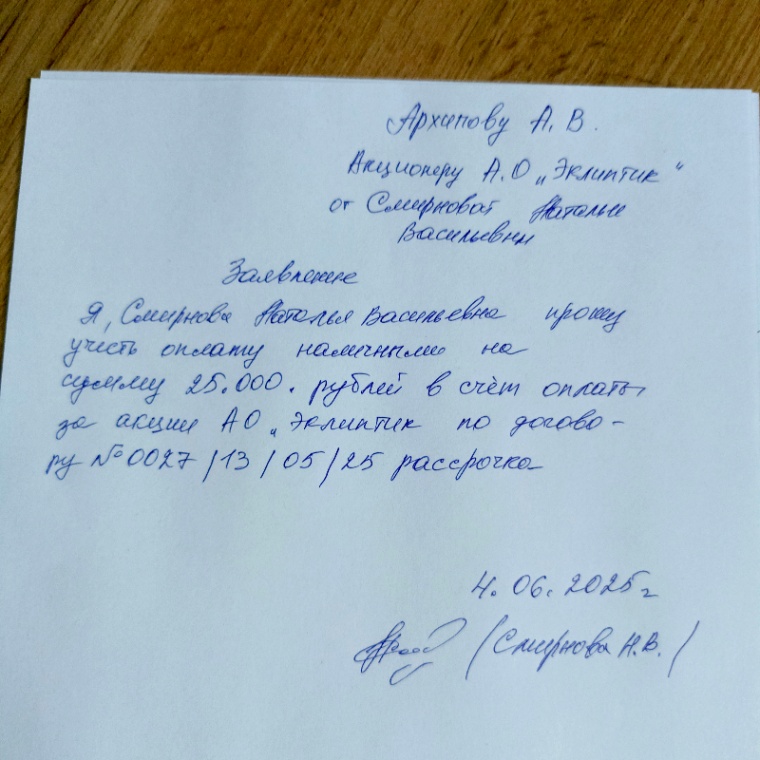 Архипову А. В.
Акционеру А.О „Эклиптик“
от Смирновой Натальи
Васильевны
Заявление
Я, Смирнова Наталья Васильевна прошу
учесть оплату наличными на
сумму 25.000. рублей в счёт оплаты
за акции АО „Эклиптик по догово-
ру №0027/13/05/25 рассрочка
4. 06. 2025г
(Смирнова Н.В.)